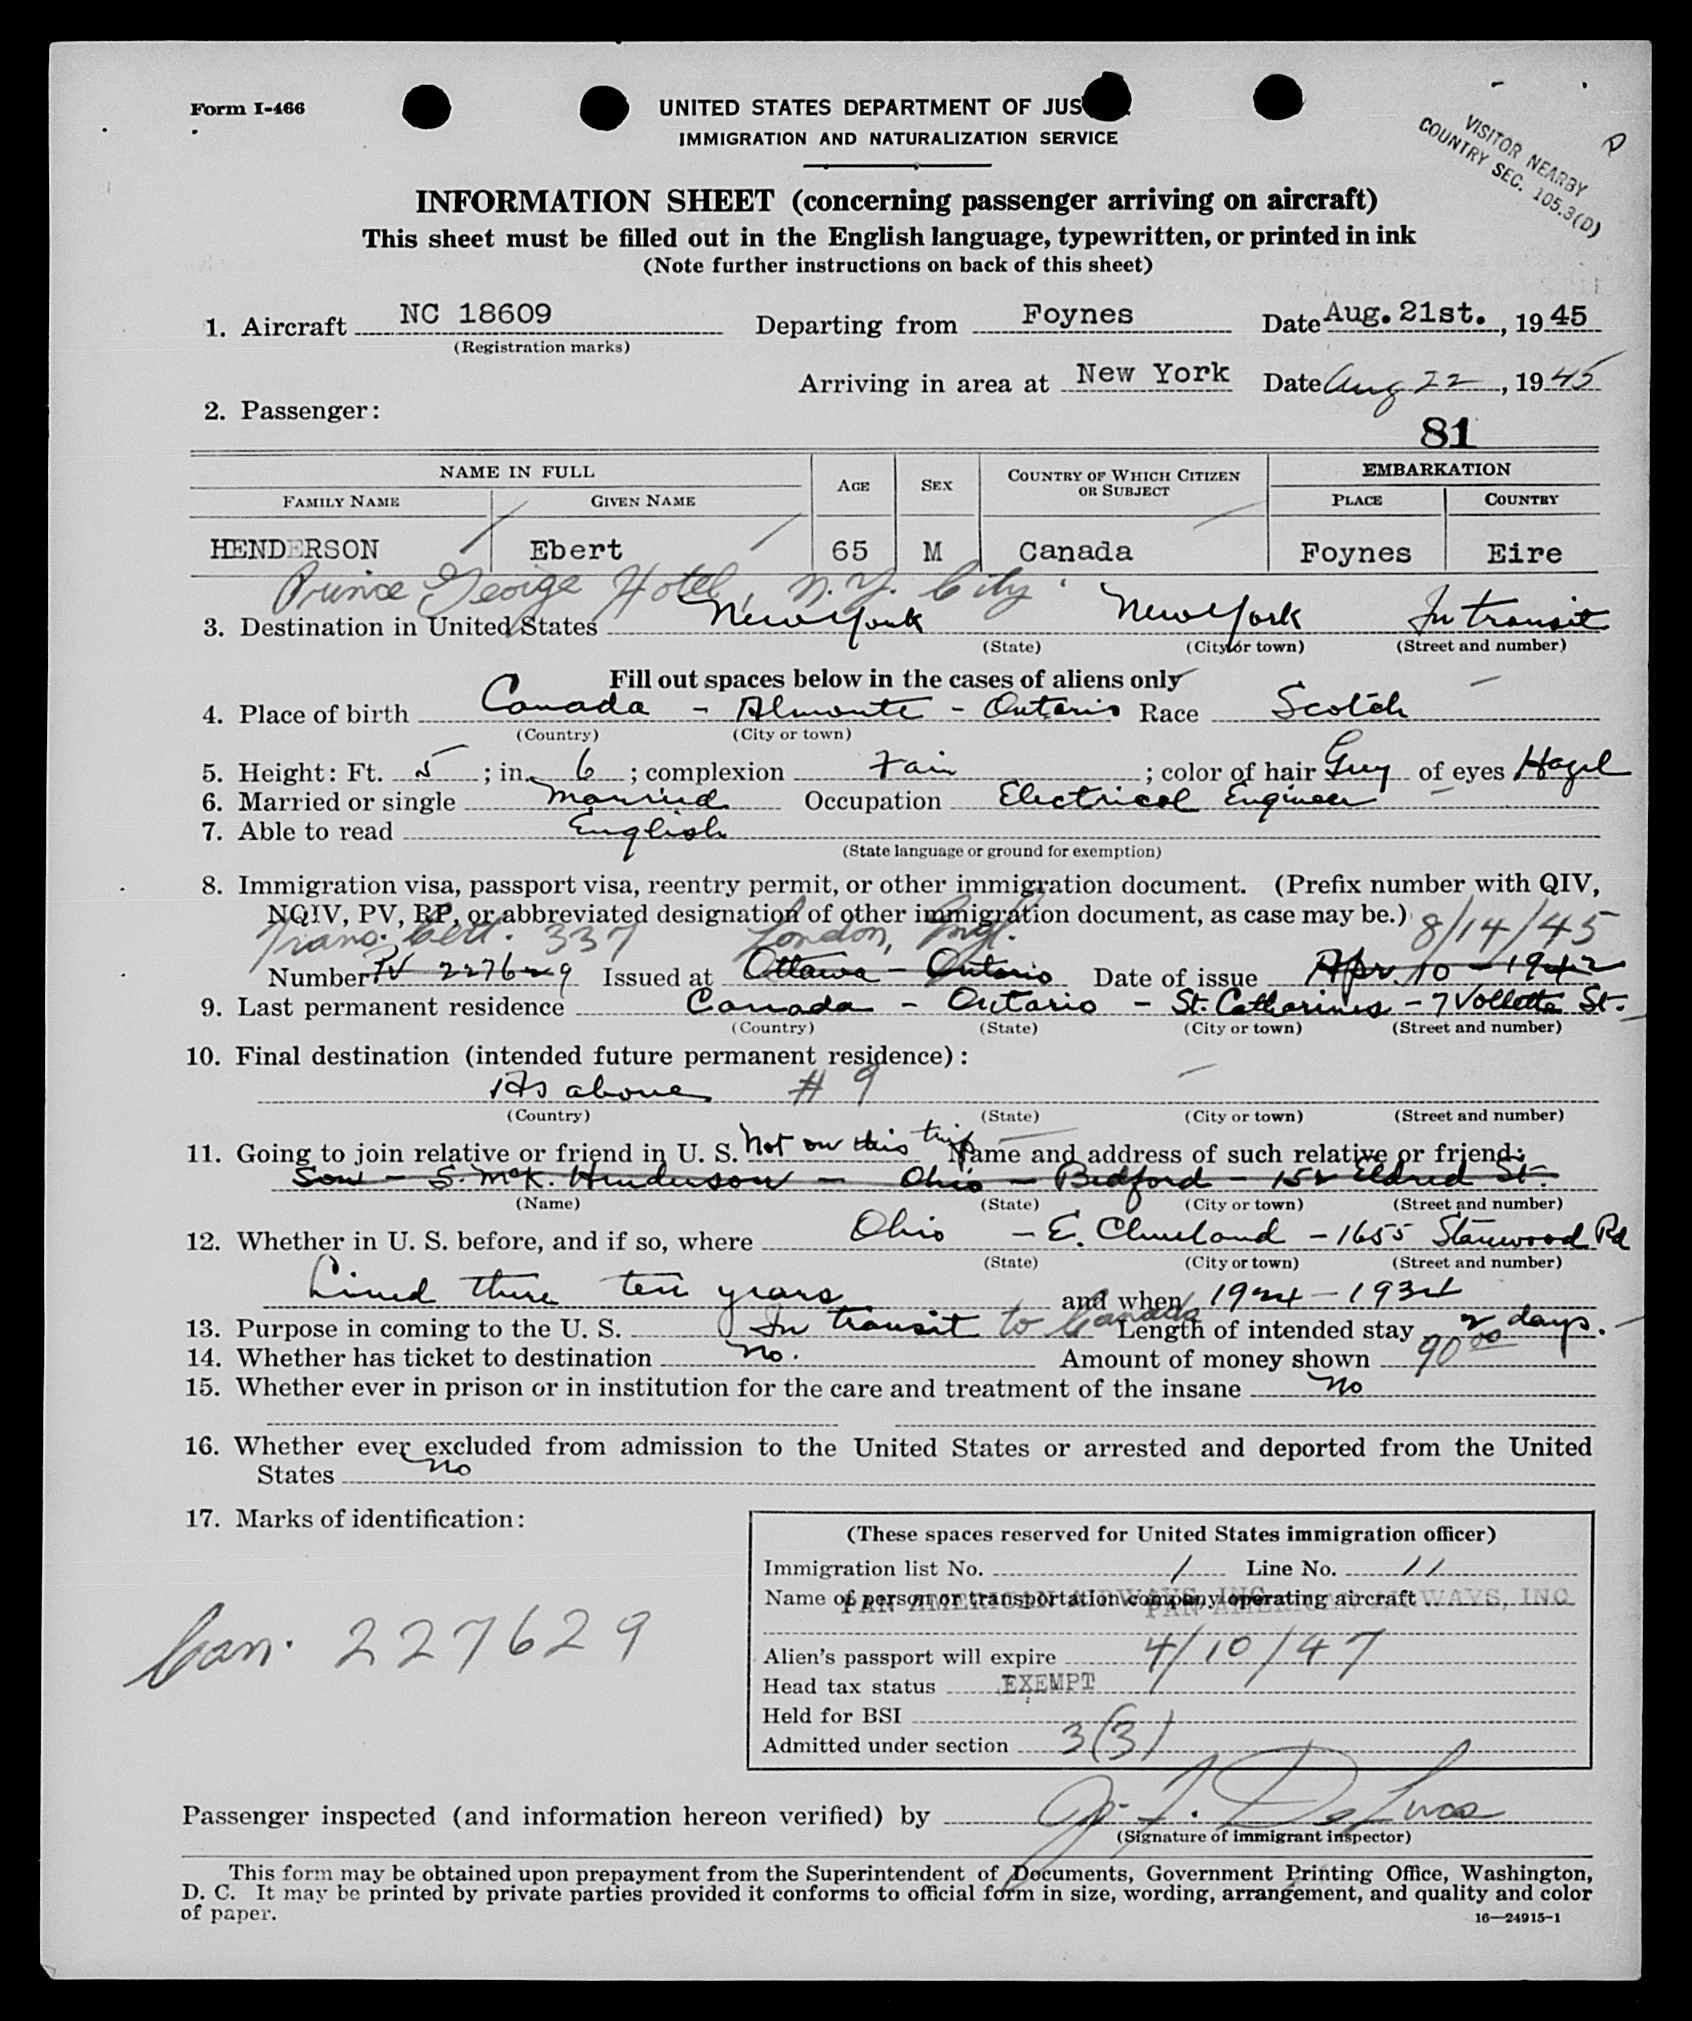 Form I-466
UNITED STATES DEPARTMENT OF JUS
IMMIGRATION AND NATURALIZATION SERVICE
VISITOR NEARBY
COUNTRY SEC. 105.3(D)
INFORMATION SHEET (concerning passenger arriving on aircraft)
This sheet must be filled out in the English language, typewritten, or printed in ink
(Note further instructions on back of this sheet)
1. Aircraft NC 18609 Departing from Foynes Date Aug. 21st., 1945
(Registration marks)
Arriving in area at New York Date Aug 22, 1945
2. Passenger:
81
NAME IN FULL AGE SEX COUNTRY OF WHICH CITIZEN OR SUBJECT EMBARKATION
FAMILY NAME GIVEN NAME PLACE COUNTRY
HENDERSON Ebert 65 M Canada Foynes Eire
Prince George Hotel, N.Y. City
3. Destination in United States New York New York In transit
(State) (City or town) (Street and number)
Fill out spaces below in the cases of aliens only
4. Place of birth Canada - Almonte - Ontario Race Scotch
(Country) (City or town)
5. Height: Ft. 5; in. 6; complexion Fair; color of hair Grey of eyes Hazel
6. Married or single Married Occupation Electrical Engineer
7. Able to read English
(State language or ground for exemption)
8. Immigration visa, passport visa, reentry permit, or other immigration document. (Prefix number with QIV,
NQIV, PV, RP, or abbreviated designation of other immigration document, as case may be.)
Trans. Cert. 337 London, Engl. 8/14/45
Number PV 227629 Issued at Ottawa - Ontario Date of issue Apr. 10 - 1942
9. Last permanent residence Canada - Ontario - St. Catharines - 7 St.
(Country) (State) (City or town) (Street and number)
10. Final destination (intended future permanent residence):
As above # 9
(Country) (State) (City or town) (Street and number)
11. Going to join relative or friend in U. S. Not on this trip Name and address of such relative or friend:
Son - S. McK. Henderson - Ohio - Bedford - 152 Eldred St.
(Name) (State) (City or town) (Street and number)
12. Whether in U. S. before, and if so, where Ohio - E. Cleveland - 1655 Stanwood Rd
(State) (City or town) (Street and number)
Lived there ten years and when 1924 - 1934
13. Purpose in coming to the U. S. In transit to Canada Length of intended stay 2 days.
14. Whether has ticket to destination No. Amount of money shown 90 00
15. Whether ever in prison or in institution for the care and treatment of the insane No
16. Whether ever excluded from admission to the United States or arrested and deported from the United
States No
17. Marks of identification:
Can. 227629
(These spaces reserved for United States immigration officer)
Immigration list No. 1 Line No. 11
Name of person or transportation company operating aircraft
PAN AMERICAN AIRWAYS, INC PAN AMERICAN AIRWAYS, INC
Alien's passport will expire 4/10/47
Head tax status EXEMPT
Held for BSI
Admitted under section 3(3)
Passenger inspected (and information hereon verified) by J. F. De Luca
(Signature of immigrant inspector)
This form may be obtained upon prepayment from the Superintendent of Documents, Government Printing Office, Washington,
D. C. It may be printed by private parties provided it conforms to official form in size, wording, arrangement, and quality and color
of paper.
16—24915-1